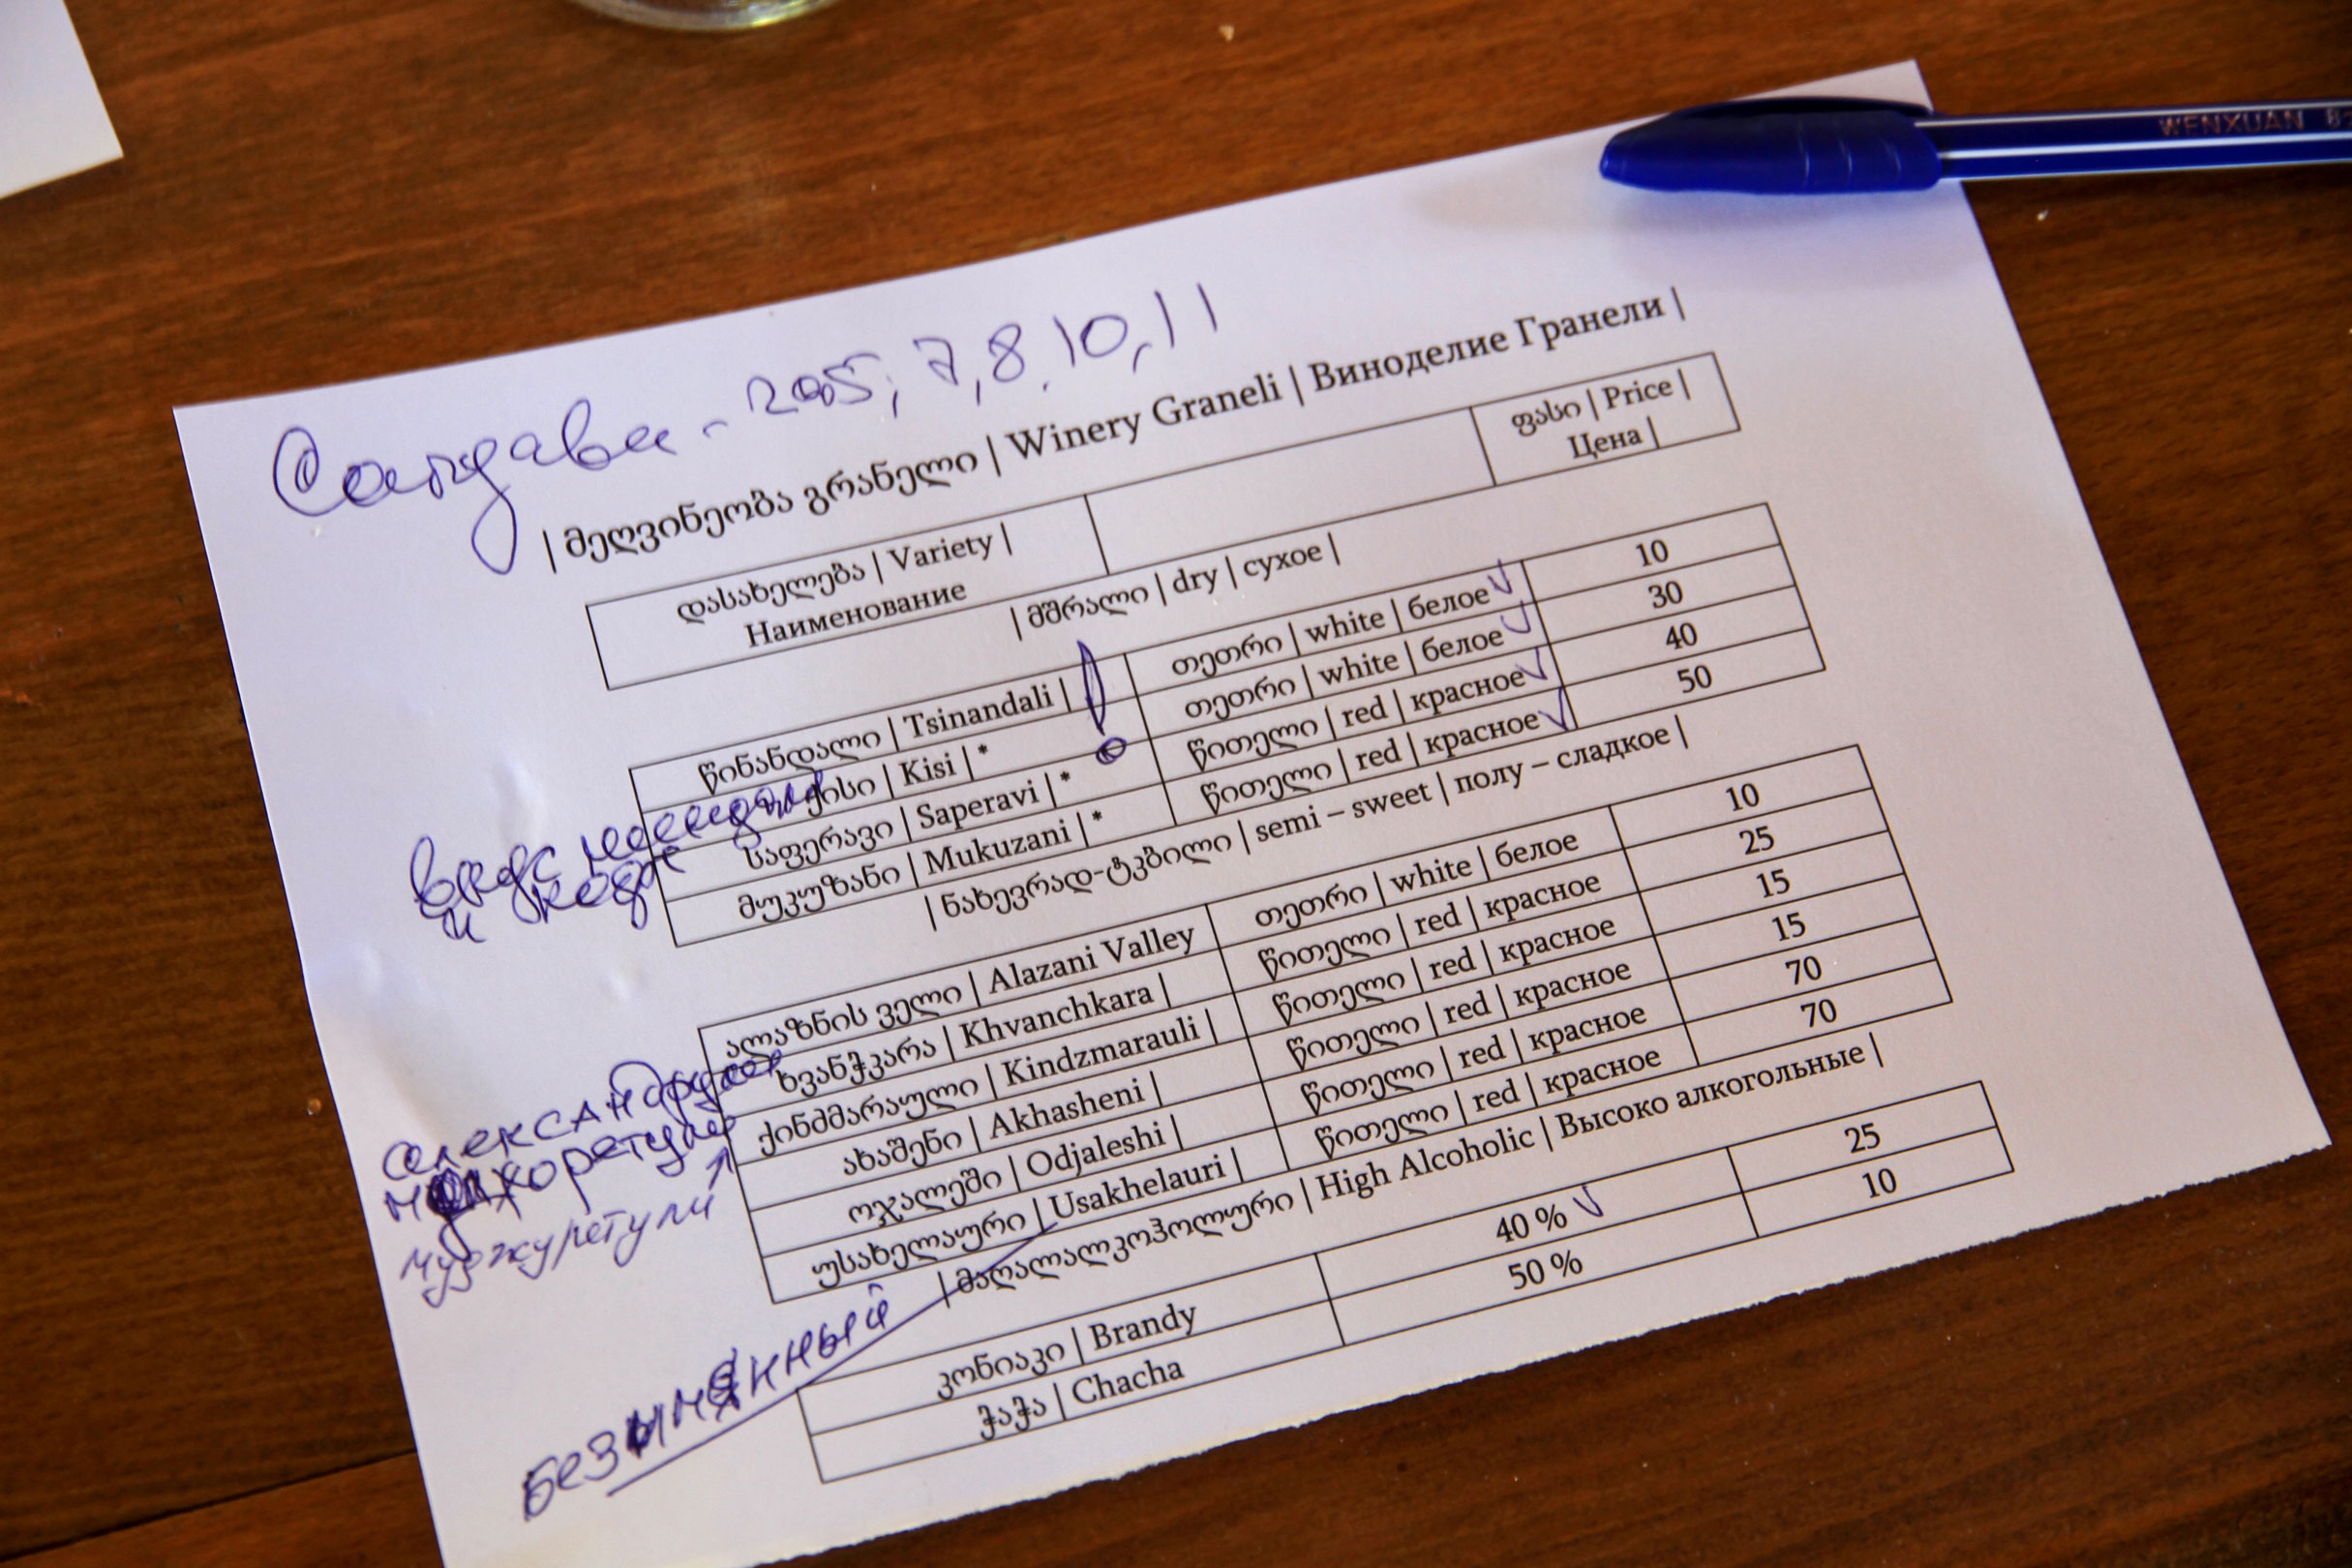 WENXUAN 8
Сандави - 2005, 7, 8, 10, 11
| მეღვინეობა გრანელი | Winery Graneli | Виноделие Гранели |
დასახელება | Variety |
Наименование
ფასი | Price |
Цена |
| მშრალი | dry | сухое |
წინანდალი | Tsinandali | ! თეთრი | white | белое ✓ 10
ქისი | Kisi | * თეთრი | white | белое ✓ 30
საფერავი | Saperavi | * წითელი | red | красное ✓ 40
მუკუზანი | Mukuzani | * წითელი | red | красное ✓ 50
вкус миндаля
и кедра
| ნახევრად-ტკბილი | semi – sweet | полу – сладкое |
ალაზნის ველი | Alazani Valley თეთრი | white | белое 10
ხვანჭკარა | Khvanchkara | წითელი | red | красное 25
ქინძმარაული | Kindzmarauli | წითელი | red | красное 15
ახაშენი | Akhasheni | წითელი | red | красное 15
ოჯალეში | Odjaleshi | წითელი | red | красное 70
უსახელაური | Usakhelauri | წითელი | red | красное 70
александрули
муджуретули
безымянный
| მაღალალკოჰოლური | High Alcoholic | Высоко алкогольные |
კონიაკი | Brandy 40 % ✓ 25
ჭაჭა | Chacha 50 % 10